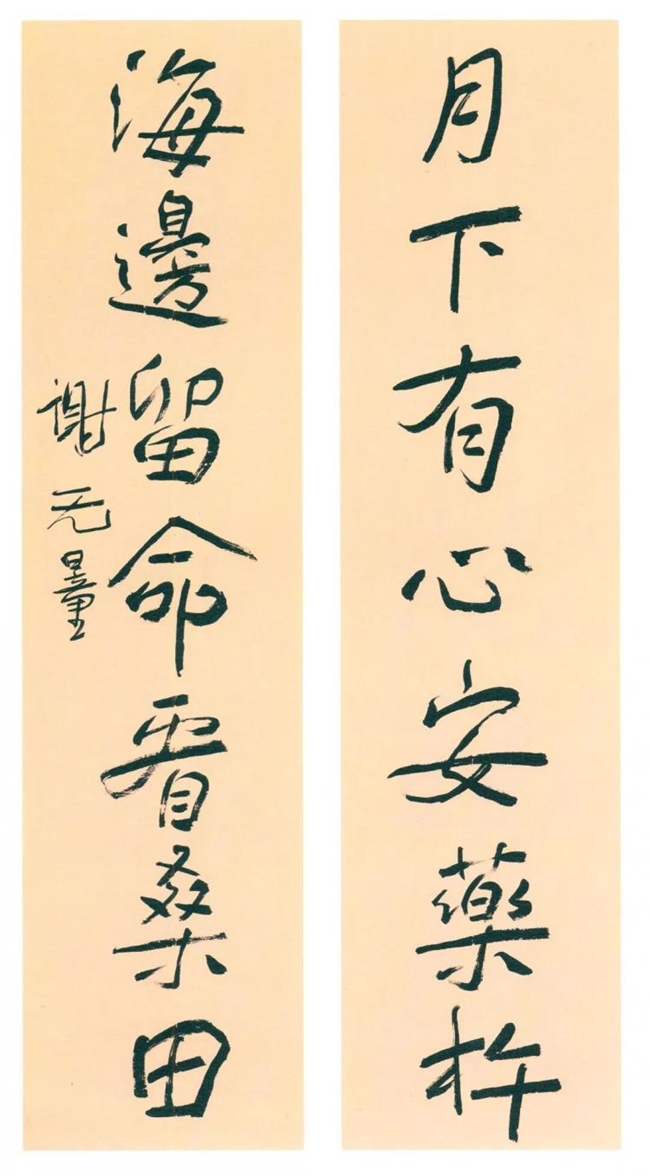 月下有心安藥杵
海邊留命看桑田
谢无量